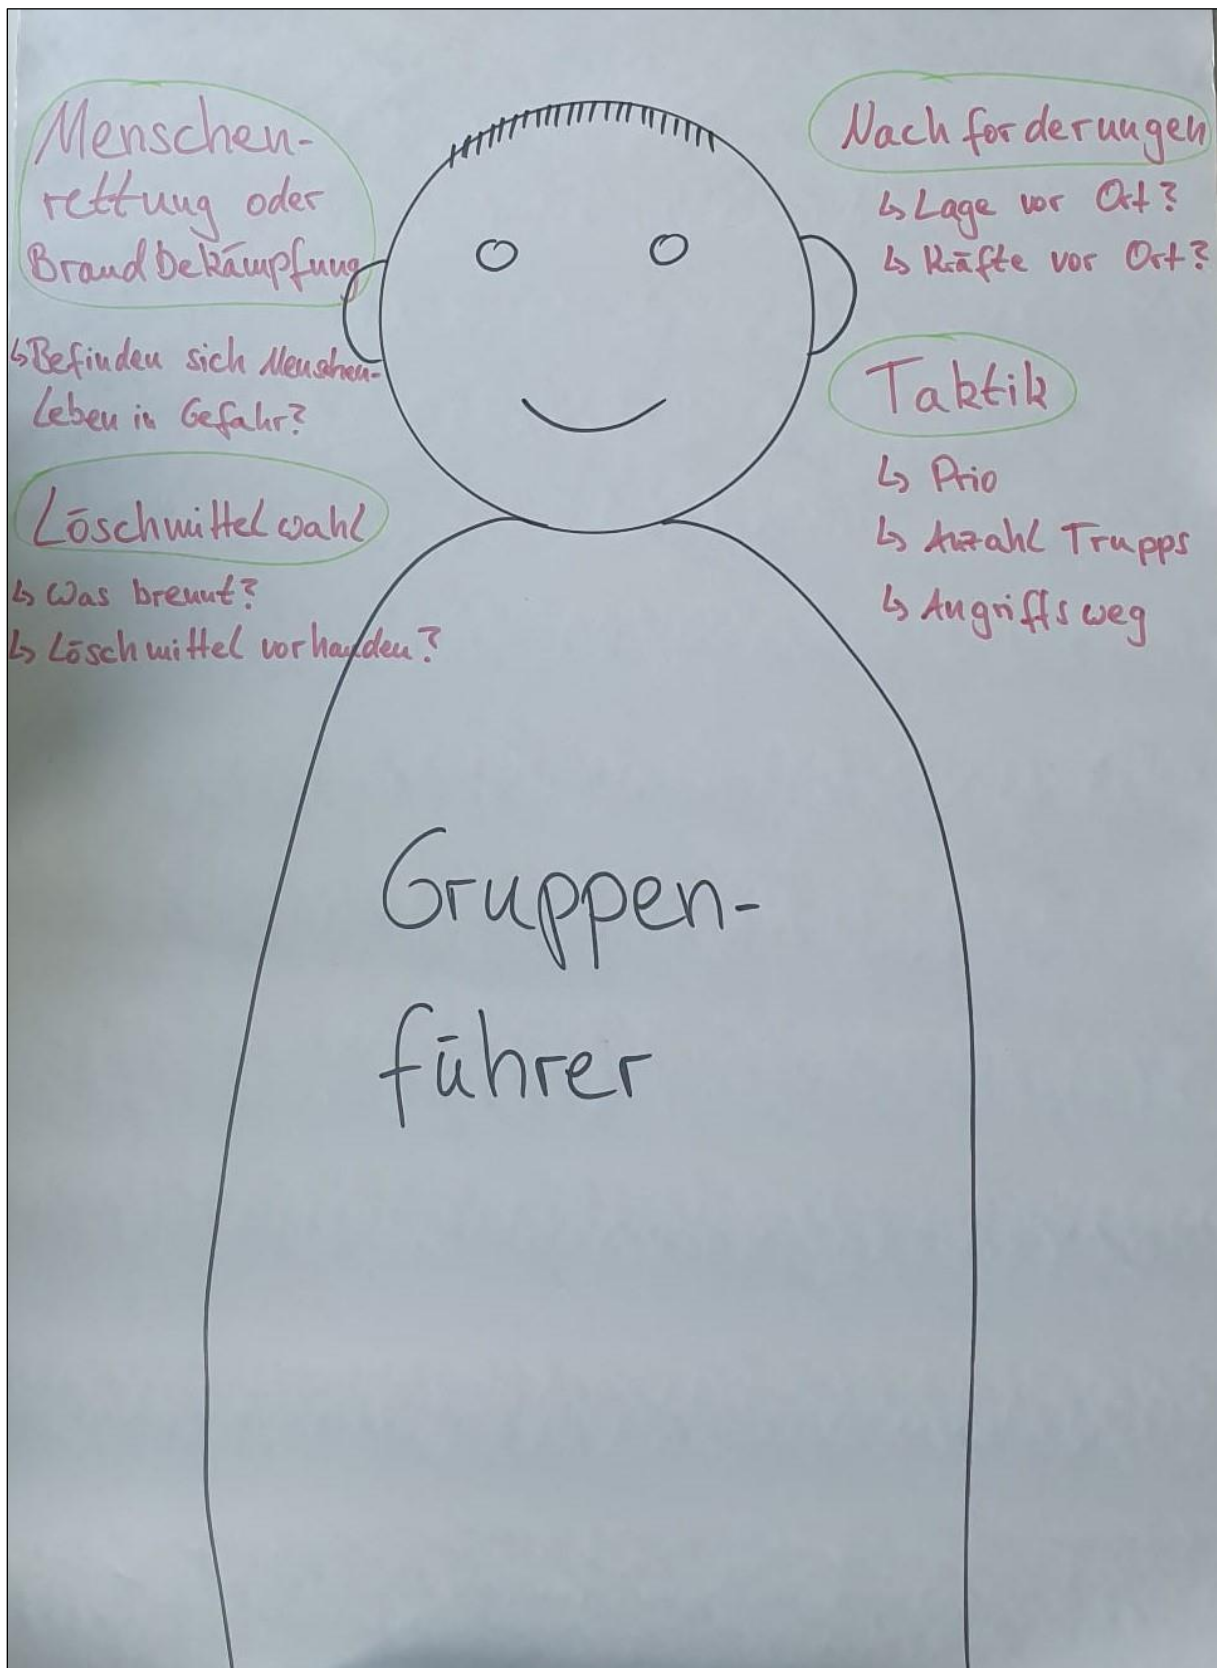 Menschen-
rettung oder
Brandbekämpfung
↳ Befinden sich Menschen-
Leben in Gefahr?
Löschmittelwahl
↳ Was brennt?
↳ Löschmittel vorhanden?
Nachforderungen
↳ Lage vor Ort?
↳ Kräfte vor Ort?
Taktik
↳ Prio
↳ Anzahl Trupps
↳ Angriffsweg
Gruppen-
führer